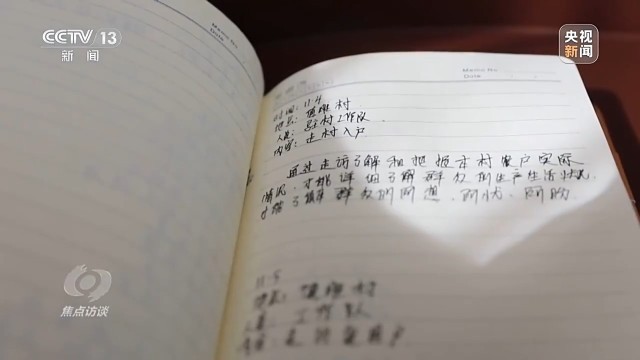 CCTV 13
新闻
央视
新闻
Memo No.
Date
Memo No.
Date
时间: 11.4
地点: 村
人员: 驻村工作队
内容: 走村入户
通过走访了解和把握本村农户实际
情况, 才能详细了解群众的生产生活状况,
了解群众的所思、所忧、所盼
11.5
地点: 村
人员: 工作队
内容: 走访农户
焦点访谈